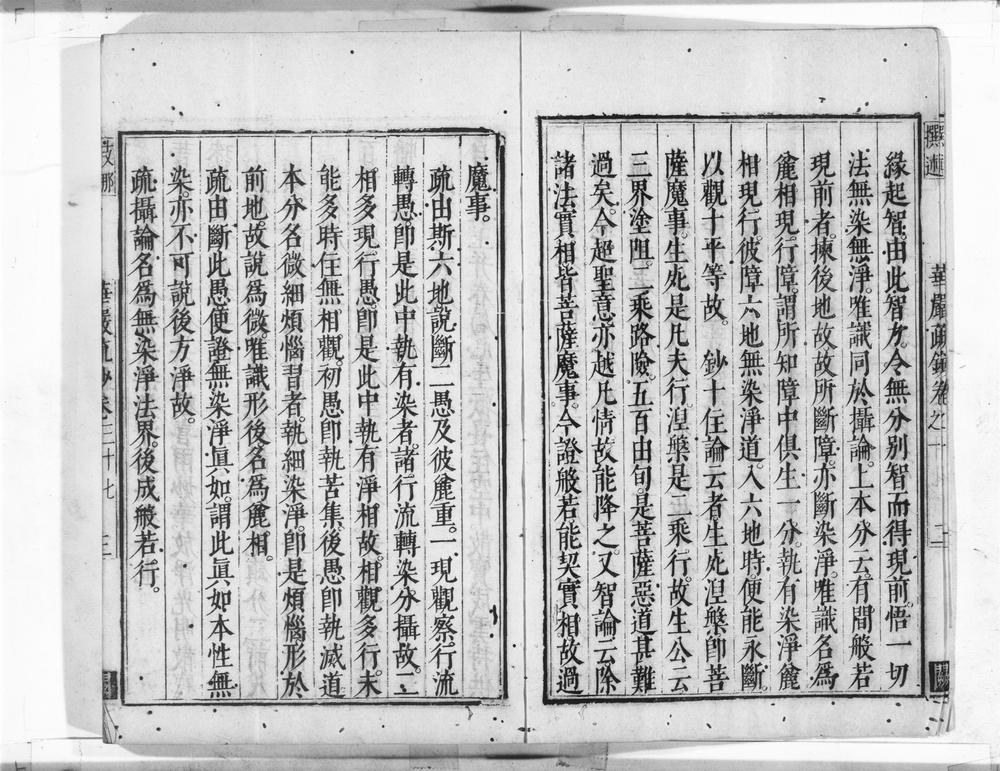 撰述
華嚴疏鈔卷之三十九
二
緣起智由此智力。令無分別智而得現前悟一切
法無染無淨。唯識同於攝論。上本分云有間般若
現前者。揀後地故故所斷障。亦斷染淨。唯識名爲
麤相現行障謂所知障中俱生一分。執有染淨麤
相現行。彼障六地無染淨道。入六地時。便能永斷。
以觀十平等故。 鈔十住論云者生死涅槃卽菩
薩魔事。生死是凡夫行。涅槃是二乘行。故生公云
三界塗阻。二乘路險。五百由旬。是菩薩惡道甚難
過矣。今超聖意亦越凡情故能降之。又智論云除
諸法實相皆菩薩魔事。今證般若能契實相故過
魔事。
疏由斯六地說斷二愚及彼麤重。一現觀察行流
轉愚。卽是此中執有染者。諸行流轉染分攝故。二
相多現行愚。卽是此中執有淨相故。相觀多行。未
能多時住無相觀。初愚卽執苦集。後愚卽執滅道
本分名微細煩惱習者。執細染淨。卽是煩惱。形於
前地。故說爲微。唯識形後名爲麤相。
疏由斷此愚便證無染淨眞如。謂此眞如本性無
染。亦不可說後方淨故。
疏攝論名爲無染淨法界。後成般若行。
支那
華嚴疏鈔卷三十七
三